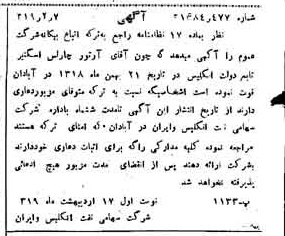 شماره ۲۱۶۸۴٫۴۷۷ آگهی ۲۱۹٫۲٫۷
نظر بماده ۱۷ نظامنامه راجع بترکه اتباع بیگانه شرکت
دوم را آگهی میدهد که چون آقای آرتور چارلس اسکنیر
تابع دولت انگلیس در تاریخ ۲۱ بهمن ماه ۱۳۱۸ در آبادان
فوت نموده است اشخاصیکه نسبت به ترکه متوفای مزبور دعاوی
دارند از تاریخ انتشار این آگهی تا مدت ششماه باداره شرکت
سهامی نفت انگلیس و ایران در آبادان که امنای ترکه هستند
مراجعه نموده کلیه مدارکی راکه برای اثبات دعاوی خود دارند
بشرکت ارائه دهند پس از انقضای مدت مزبور هیچ ادعائی
پذیرفته نخواهد شد
پ-۱۱۳۳ نوبت اول ۱۷ اردیبهشت ماه ۳۱۹
شرکت سهامی نفت انگلیس و ایران